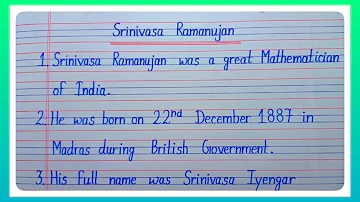 Srinivasa Ramanujan
1. Srinivasa Ramanujan was a great Mathematician
of India.
2. He was born on 22nd December 1887 in
Madras during British Government.
3. His Full name was Srinivasa Iyengar